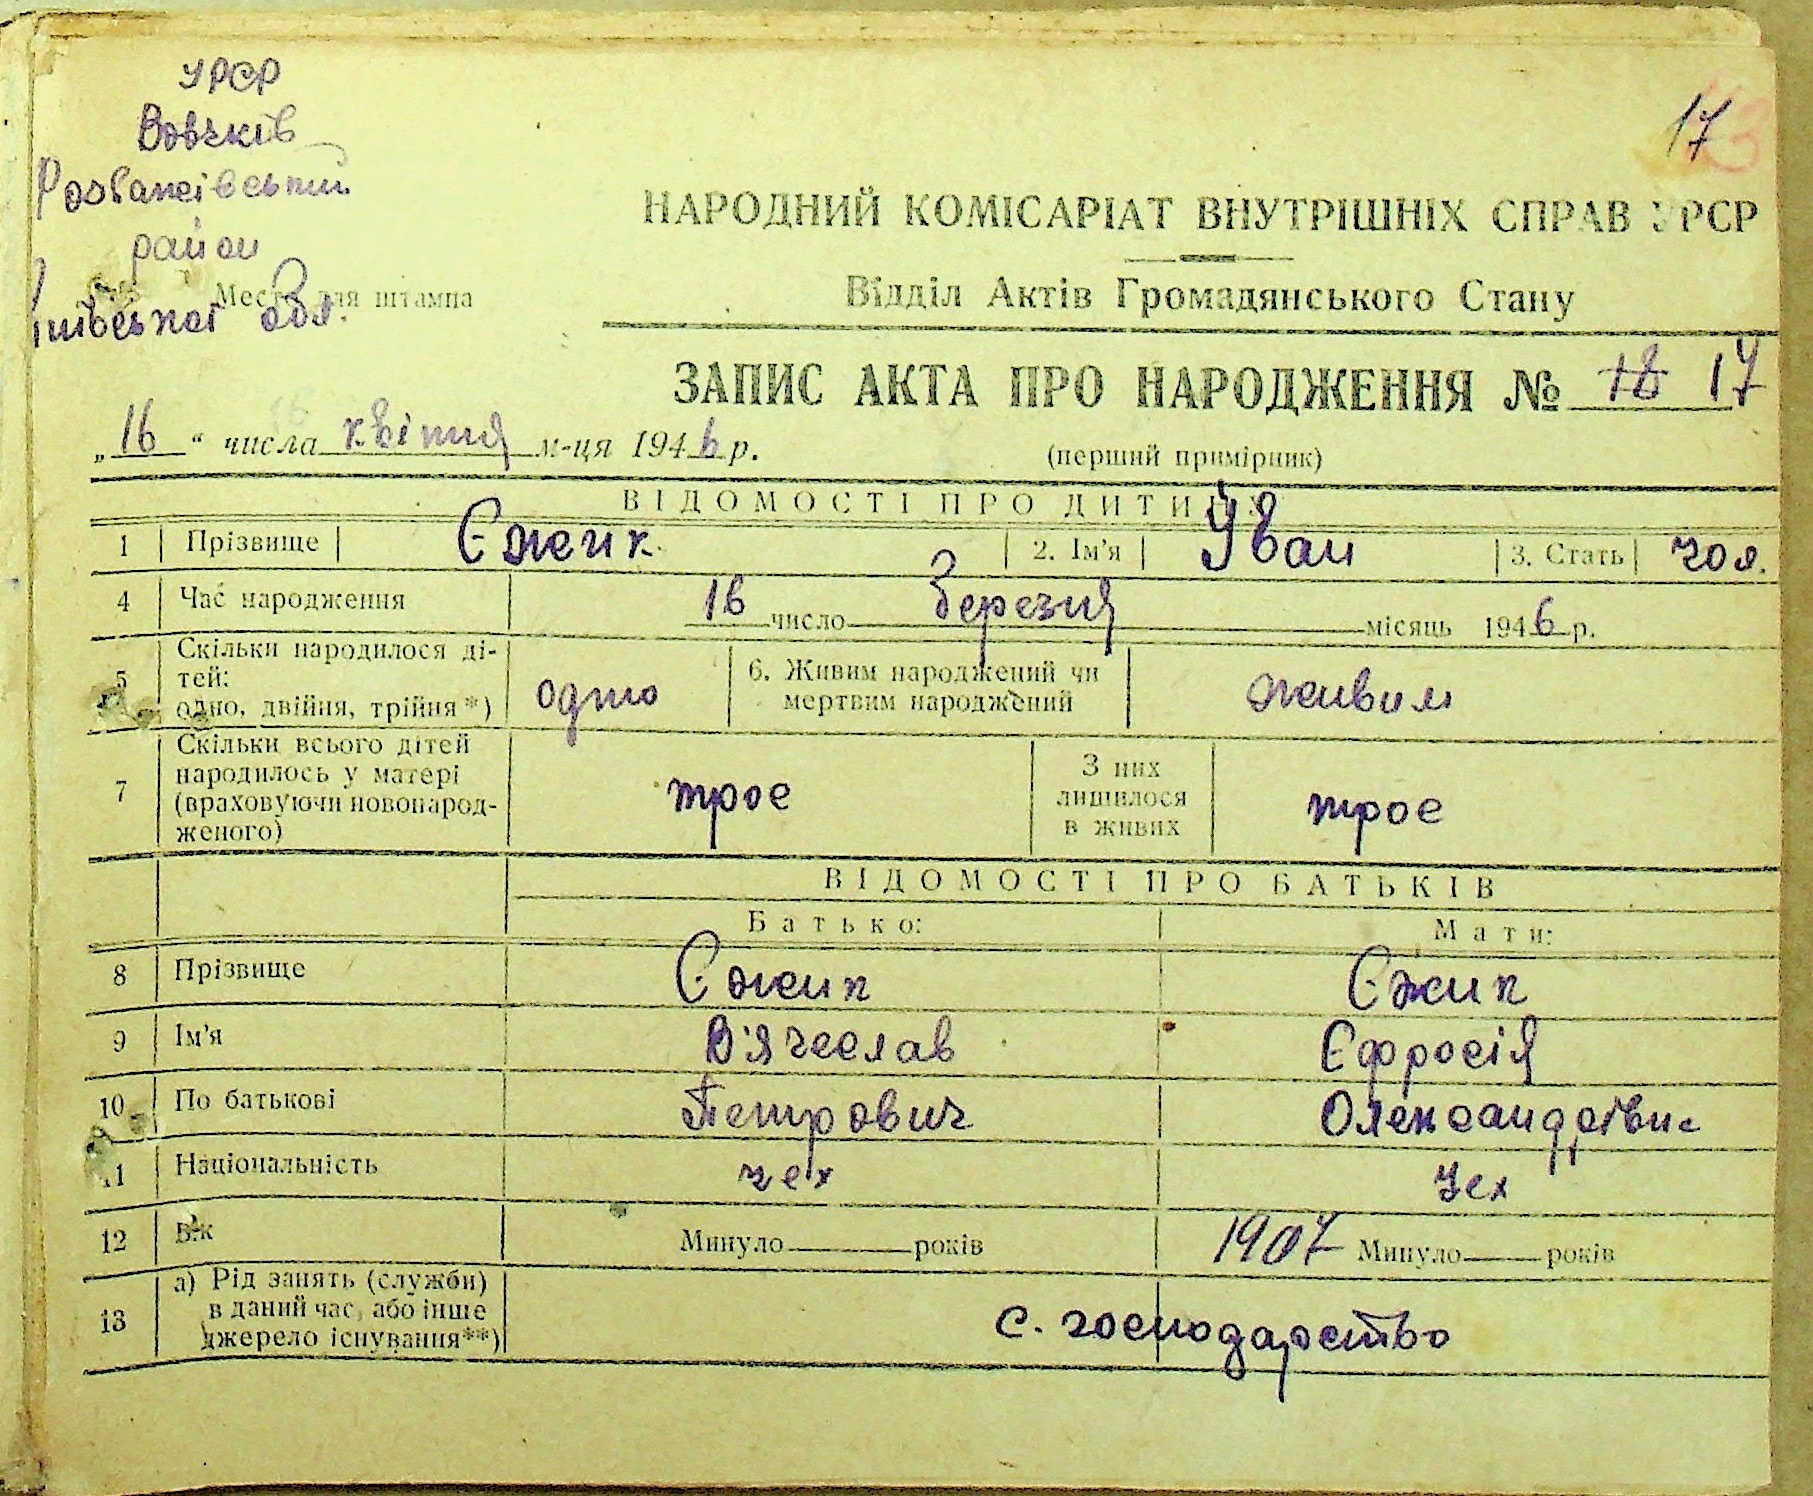 УРСР
17
Вовчків
Розважівський
район
Место для штампа
обл.
НАРОДНИЙ КОМІСАРІАТ ВНУТРІШНІХ СПРАВ УРСР
Відділ Актів Громадянського Стану
ЗАПИС АКТА ПРО НАРОДЖЕННЯ № 18 17
„16“ числа квітня м-ця 1946 р.
(перший примірник)
ВІДОМОСТІ ПРО ДИТИНУ
1 Прізвище Єжик 2. Ім'я Іван 3. Стать чол.
4 Час народження 16 число Березня місяць 1946 р.
5 Скільки народилося ді-
тей:
одно, двійня, трійня*) одно
6. Живим народжений чи
мертвим народжений живим
7 Скільки всього дітей
народилось у матері
(враховуючи новонарод-
женого) троє
З них
лишилося
в живих троє
ВІДОМОСТІ ПРО БАТЬКІВ
Батько: Мати:
8 Прізвище Єжик Єжик
9 Ім'я В'ячеслав Єфросія
10 По батькові Петрович
11 Національність чех чех
12 Вік Минуло років 1907 Минуло років
13 а) Рід занять (служби)
в даний час, або інше
джерело існування**) с. господарство